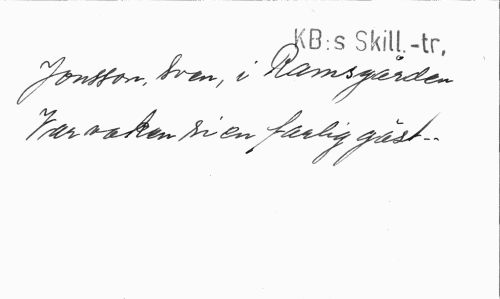 KB:s Skill.-tr.
Jonsson, Sven, i Ramsgården
Var vaken si en farlig gäst..